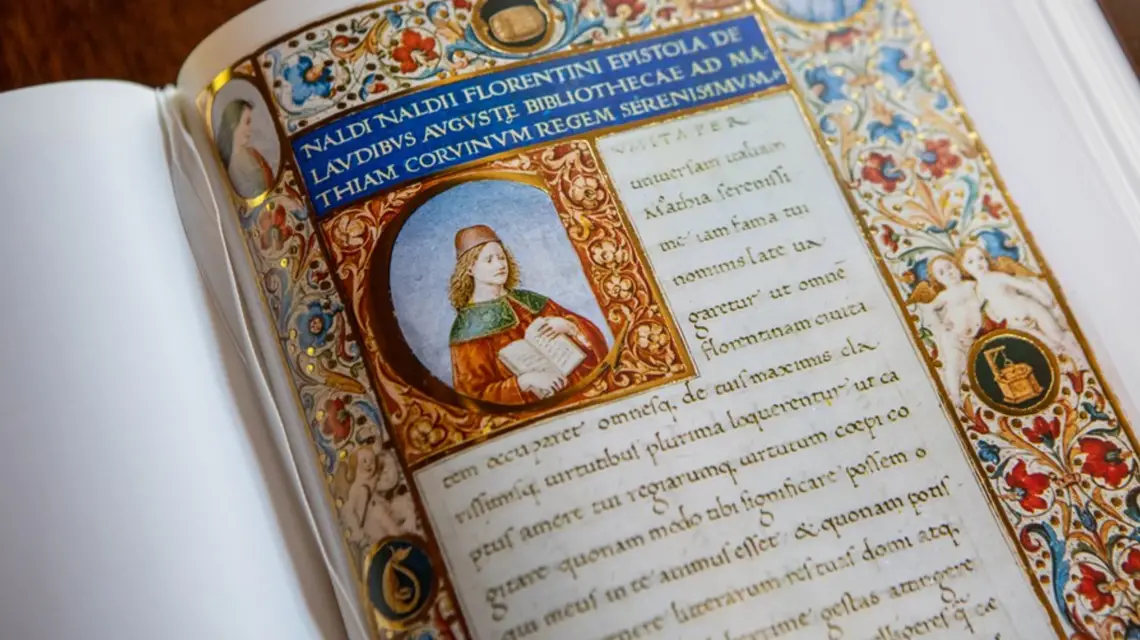 NALDI NALDII FLORENTINI EPISTOLA DE
LAVDIBVS AVGVSTĘ BIBLIOTHECAE AD MA-
THIAM CORVINVM REGEM SERENISSIMVM.
VM ITA PER
uniuersam italiam
Mathia serenissi
me iam fama tui
nominis late ua
garetur ut omnē
florentinam ciuita
tem occuparet omnesq. de tuis maximis cla
rissimisq. uirtutibus plurima loquerentur ut ca
ptus amore tui regiarumq. uirtutum coepi co
gitare quonam modo tibi significare possem o
qui meus in te animus esset & quonam potis
genere litterarum res tuas domi atq
gestas attingere